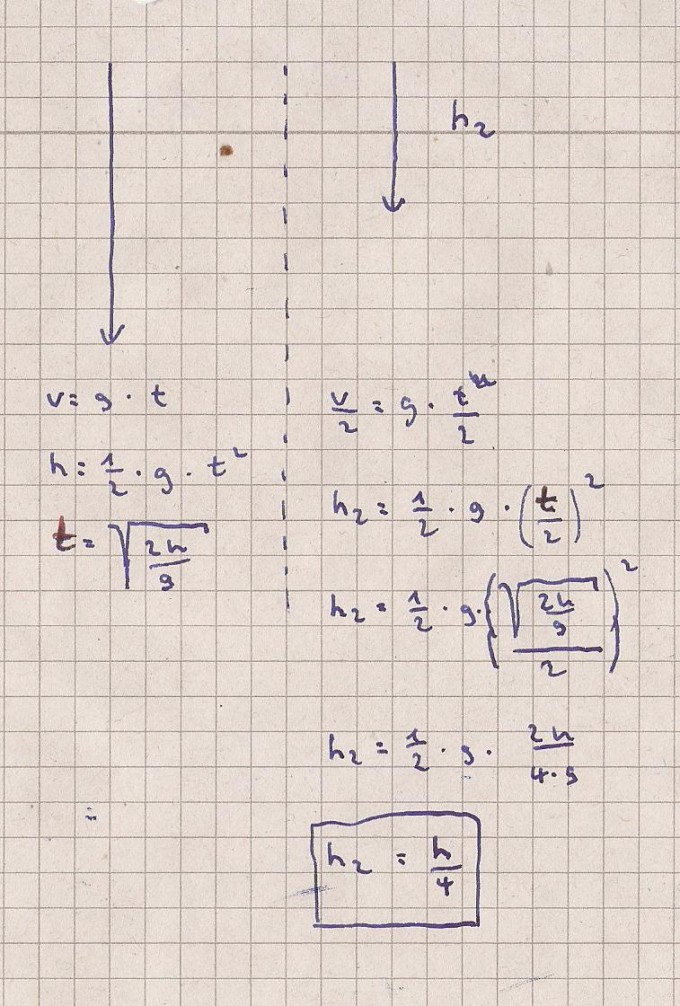 h₂
v = g · t
h = 1/2 · g · t²
t = √(2h/g)
v/2 = g · t/2
h₂ = 1/2 · g · (t/2)²
h₂ = 1/2 · g · (√(2h/g)/2)²
h₂ = 1/2 · g · 2h/(4·g)
=
h₂ = h/4